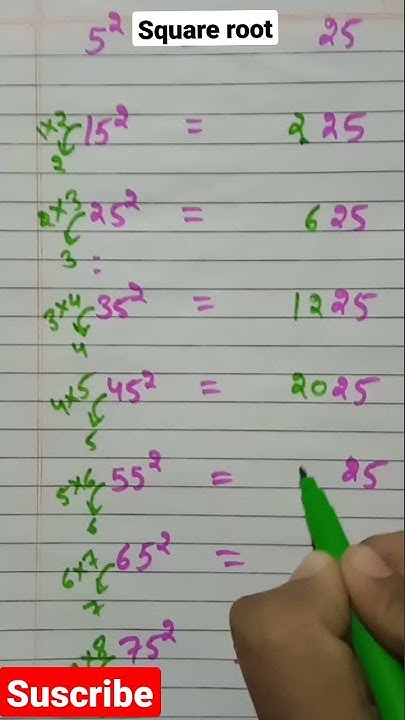 Square root
5² 25
1×2 15² = 225
2
2×3 25² = 625
3 :
3×4 35² = 1225
4
4×5 45² = 2025
5
5×6 55² = 25
6
6×7 65² =
7
×8 75²
Suscribe